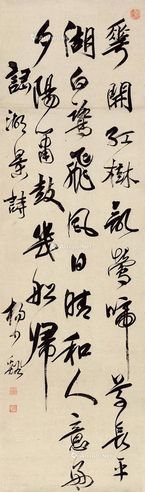 花開紅樹亂鶯啼草長平
湖白鷺飛風日晴和人意好
夕陽簫鼓幾船歸
詠湖景詩
楊少谿